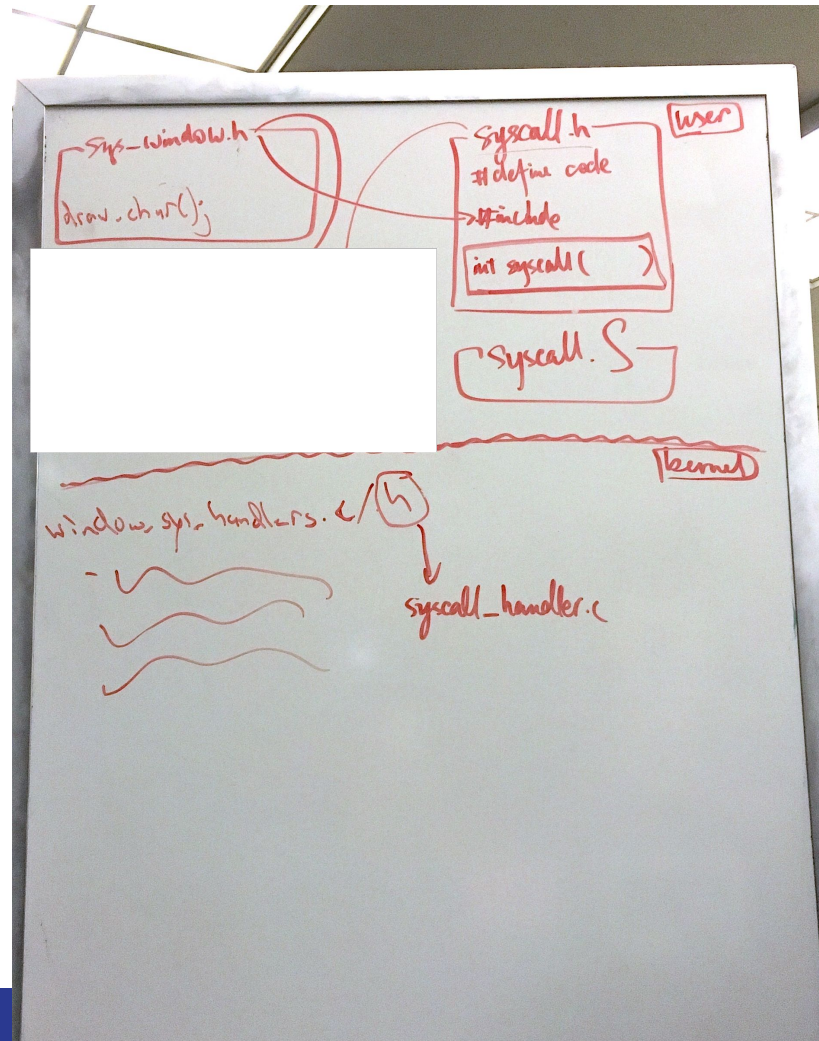 sys_window.h
draw_char();
syscall.h
user
#define code
#include
int syscall( )
syscall.S
kernel
window_sys_handlers.c/h
syscall_handler.c